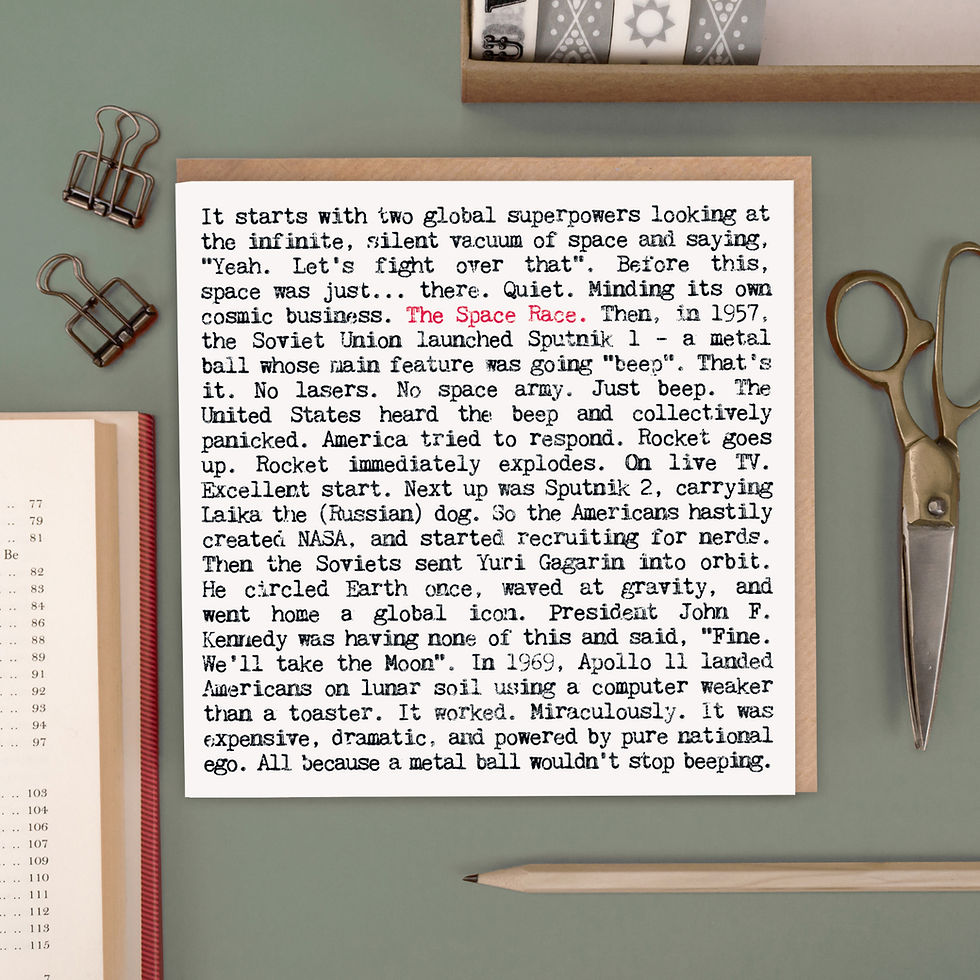 It starts with two global superpowers looking at
the infinite, silent vacuum of space and saying,
"Yeah. Let's fight over that". Before this,
space was just... there. Quiet. Minding its own
cosmic business. The Space Race. Then, in 1957,
the Soviet Union launched Sputnik 1 - a metal
ball whose main feature was going "beep". That's
it. No lasers. No space army. Just beep. The
United States heard the beep and collectively
panicked. America tried to respond. Rocket goes
up. Rocket immediately explodes. On live TV.
Excellent start. Next up was Sputnik 2, carrying
Laika the (Russian) dog. So the Americans hastily
created NASA, and started recruiting for nerds.
Then the Soviets sent Yuri Gagarin into orbit.
He circled Earth once, waved at gravity, and
went home a global icon. President John F.
Kennedy was having none of this and said, "Fine.
We'll take the Moon". In 1969, Apollo 11 landed
Americans on lunar soil using a computer weaker
than a toaster. It worked. Miraculously. It was
expensive, dramatic, and powered by pure national
ego. All because a metal ball wouldn't stop beeping.
.. 77
.. 79
.. 81
Be
.. 82
.. 83
.. 84
.. 86
.. 88
.. 89
.. 91
.. 92
.. 93
.. 94
.. 97
.. 103
.. 104
.. 106
.. 107
.. 109
.. 110
.. 111
.. 112
.. 113
.. 115
7